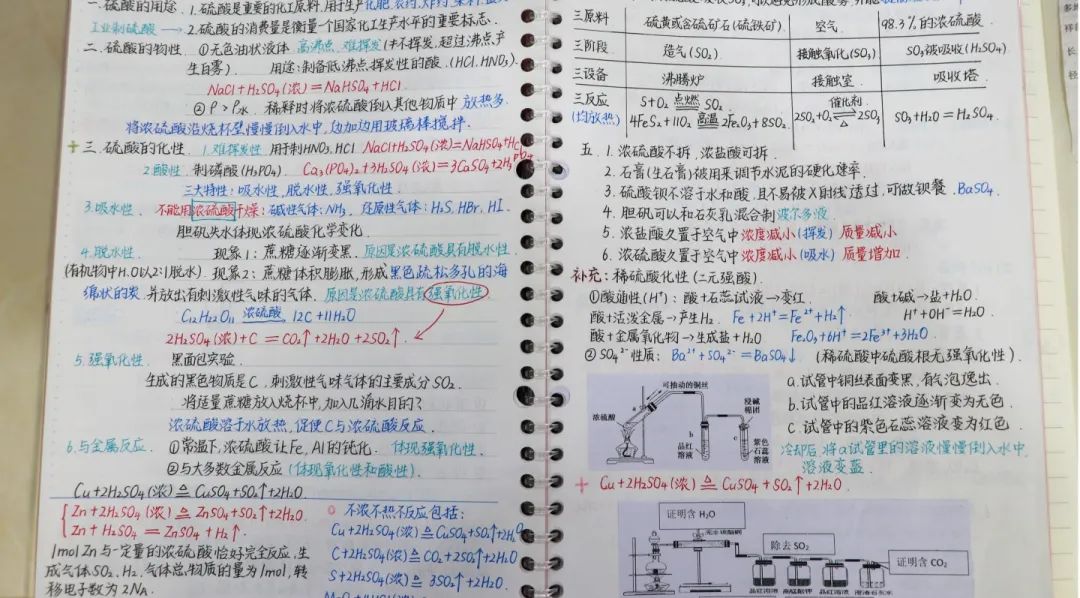 一.硫酸的用途. 1.硫酸是重要的化工原料,用于生产化肥、农药、炸药、染料、
工业制硫酸 → 2.硫酸的消费量是衡量一个国家化工生产水平的重要标志.
二.硫酸的物性 ①无色油状液体 高沸点、难挥发(才不挥发,超过沸点产
生白雾). 用途:制备低沸点挥发性的酸.(HCl、HNO₃).
NaCl+H₂SO₄(浓)=NaHSO₄+HCl
②ρ>ρ水. 稀释时将浓硫酸倒入其他物质中 放热多.
将浓硫酸沿烧杯壁慢慢倒入水中,边加边用玻璃棒搅拌.
三.硫酸的化性. 1.难挥发性 用于制HNO₃、HCl NaCl+H₂SO₄(浓)=NaHSO₄+HCl
2.酸性. 制磷酸(H₃PO₄). Ca₃(PO₄)₂+3H₂SO₄(浓)=3CaSO₄+2H₃PO₄
三大特性:吸水性,脱水性,强氧化性.
3.吸水性. 不能用浓硫酸干燥:碱性气体:NH₃、还原性气体:H₂S、HBr、HI.
胆矾失水体现浓硫酸化学变化.
4.脱水性. 现象1:蔗糖逐渐变黑.原因是浓硫酸具有脱水性
(有机物中H、O以2:1脱水). 现象2:蔗糖体积膨胀,形成黑色疏松多孔的海
绵状的炭.并放出有刺激性气味的气体.原因是浓硫酸具有强氧化性
C₁₂H₂₂O₁₁ 浓硫酸 12C+11H₂O
2H₂SO₄(浓)+C=CO₂↑+2H₂O+2SO₂↑
5.强氧化性. 黑面包实验.
生成的黑色物质是C.刺激性气味气体的主要成分SO₂.
将适量蔗糖放入烧杯中,加入几滴水目的?
浓硫酸溶于水放热,促使C与浓硫酸反应.
6.与金属反应. ①常温下,浓硫酸让Fe、Al的钝化. 体现强氧化性.
②与大多数金属反应(体现氧化性和酸性).
Cu+2H₂SO₄(浓)≜CuSO₄+SO₂↑+2H₂O.
Zn+2H₂SO₄(浓)=ZnSO₄+SO₂↑+2H₂O.
Zn+H₂SO₄=ZnSO₄+H₂↑.
1molZn与一定量的浓硫酸恰好完全反应,生
成气体SO₂、H₂.气体总物质的量为1mol,转
移电子数为2NA.
不浓不热不反应包括:
Cu+2H₂SO₄(浓)≜CuSO₄+SO₂↑+2H₂O
C+2H₂SO₄(浓)≜CO₂+2SO₂↑+2H₂O
S+2H₂SO₄(浓)≜3SO₂↑+2H₂O.
三原料 硫黄或含硫矿石(硫铁矿) 空气. 98.3%的浓硫酸.
三阶段 造气(SO₂) 接触氧化(SO₃) SO₃被吸收(H₂SO₄).
三设备 沸腾炉 接触室. 吸收塔.
三反应 S+O₂ 点燃 SO₂ 催化剂
(均放热) 4FeS₂+11O₂ 高温 2Fe₂O₃+8SO₂. 2SO₂+O₂ ⇌ 2SO₃ △ SO₃+H₂O=H₂SO₄.
五. 1.浓硫酸不拆,浓盐酸可拆.
2.石膏(生石膏)被用来调节水泥的硬化速率.
3.硫酸钡不溶于水和酸,且不易被X射线透过,可做钡餐.BaSO₄.
4.胆矾可以和石灰乳混合制波尔多液.
5.浓盐酸久置于空气中浓度减小(挥发) 质量减小
6.浓硫酸久置于空气中浓度减小(吸水) 质量增加.
补充:稀硫酸化性(二元强酸).
①酸通性(H⁺):酸+石蕊试液→变红. 酸+碱→盐+H₂O.
酸+活泼金属→产生H₂. Fe+2H⁺=Fe²⁺+H₂↑. H⁺+OH⁻=H₂O.
酸+金属氧化物→生成盐+H₂O Fe₂O₃+6H⁺=2Fe³⁺+3H₂O.
②SO₄²⁻性质:Ba²⁺+SO₄²⁻=BaSO₄↓ (稀硫酸中硫酸根无强氧化性).
可抽动的铜丝
浓硫酸
a
浸碱棉团
b
c
品红溶液
紫色石蕊溶液
a.试管中铜丝表面变黑,有气泡逸出.
b.试管中的品红溶液逐渐变为无色.
c.试管中的紫色石蕊溶液变为红色.
冷却后,将a试管里的溶液慢慢倒入水中,
溶液变蓝.
Cu+2H₂SO₄(浓)≜CuSO₄+SO₂↑+2H₂O.
证明含H₂O
无水硫酸铜
除去SO₂
证明含CO₂
品红溶液 高锰酸钾 品红溶液 澄清石灰水